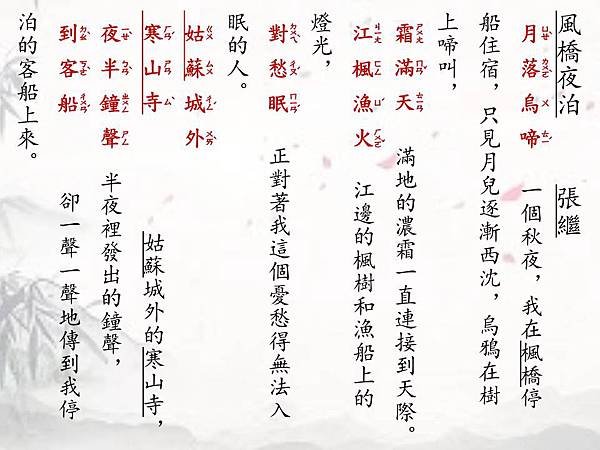 風橋夜泊 張繼
月落烏啼 一個秋夜，我在楓橋停
船住宿，只見月兒逐漸西沈，烏鴉在樹
上啼叫，
霜滿天 滿地的濃霜一直連接到天際。
江楓漁火 江邊的楓樹和漁船上的
燈光，
對愁眠 正對著我這個憂愁得無法入
眠的人。
姑蘇城外
寒山寺 姑蘇城外的寒山寺，
夜半鐘聲 半夜裡發出的鐘聲，
到客船 卻一聲一聲地傳到我停
泊的客船上來。